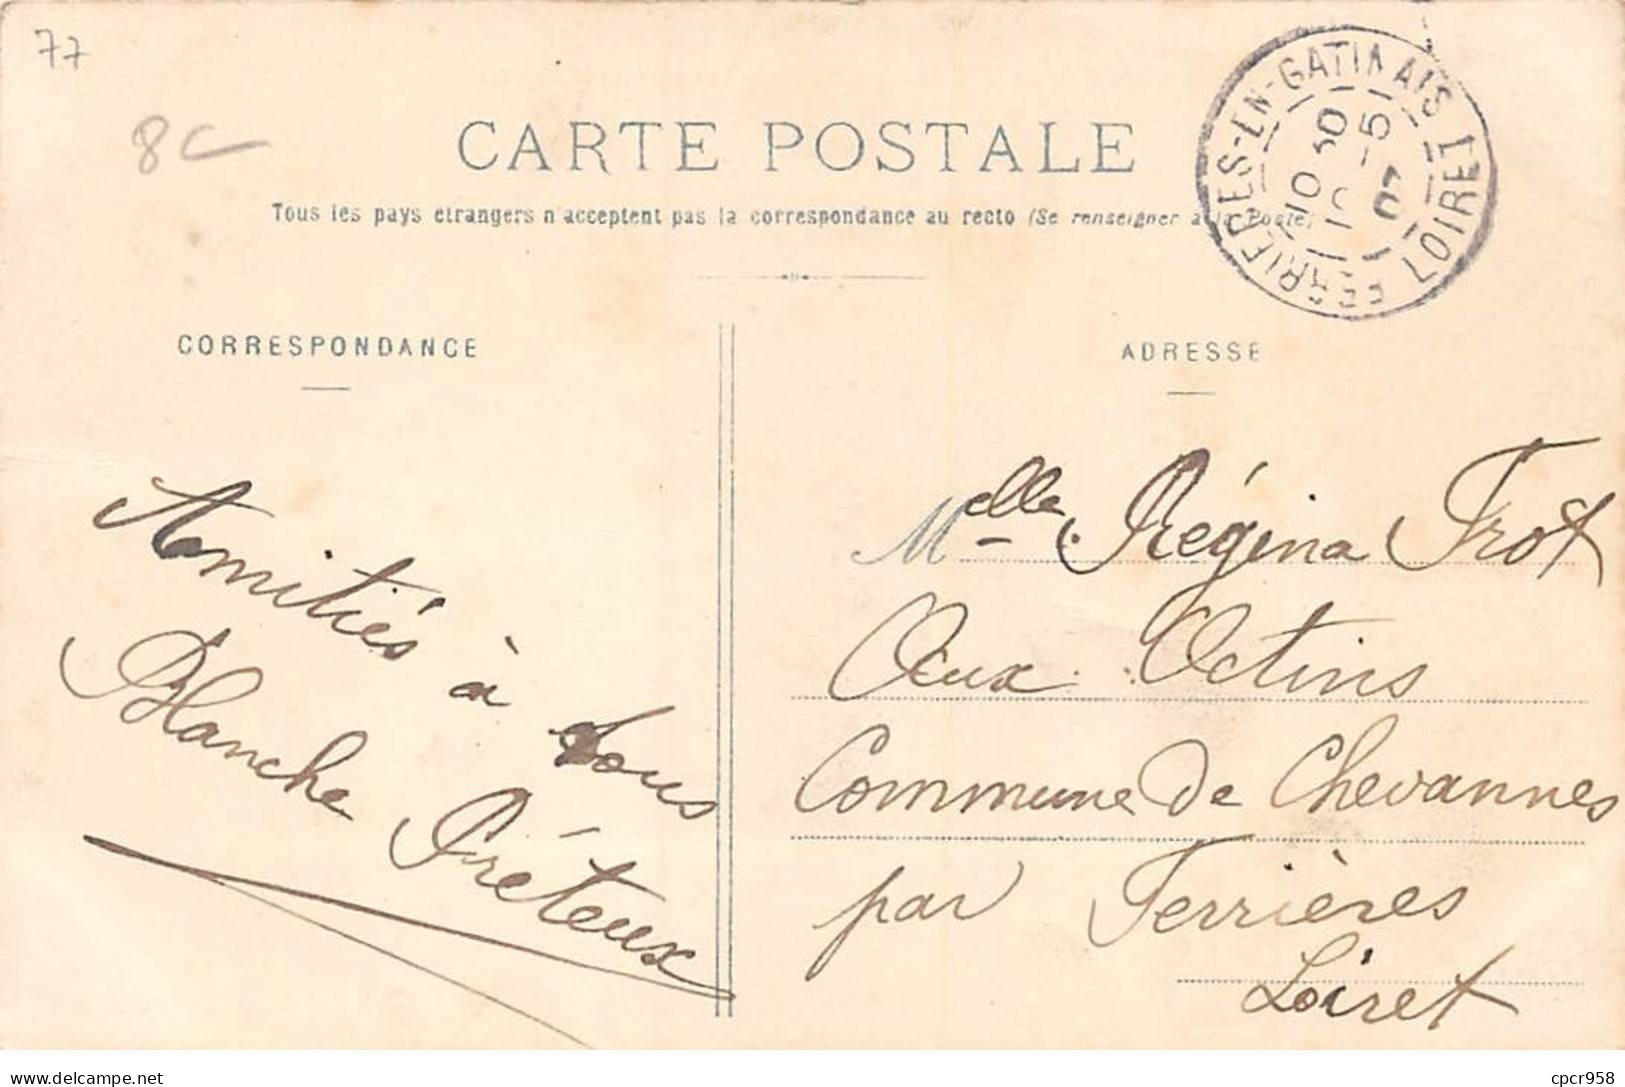 77
8c
CARTE POSTALE
Tous les pays étrangers n'acceptent pas la correspondance au recto (Se renseigner à la Poste)
FERRIERES-EN-GATINAIS
LOIRET
10 30
5
07
CORRESPONDANCE
ADRESSE
Amitiés à tous
Blanche Préteux
Melle Régina Trot
Aux Octins
Commune de Chevannes
par Ferrières
Loiret
www.delcampe.net
cpcr958